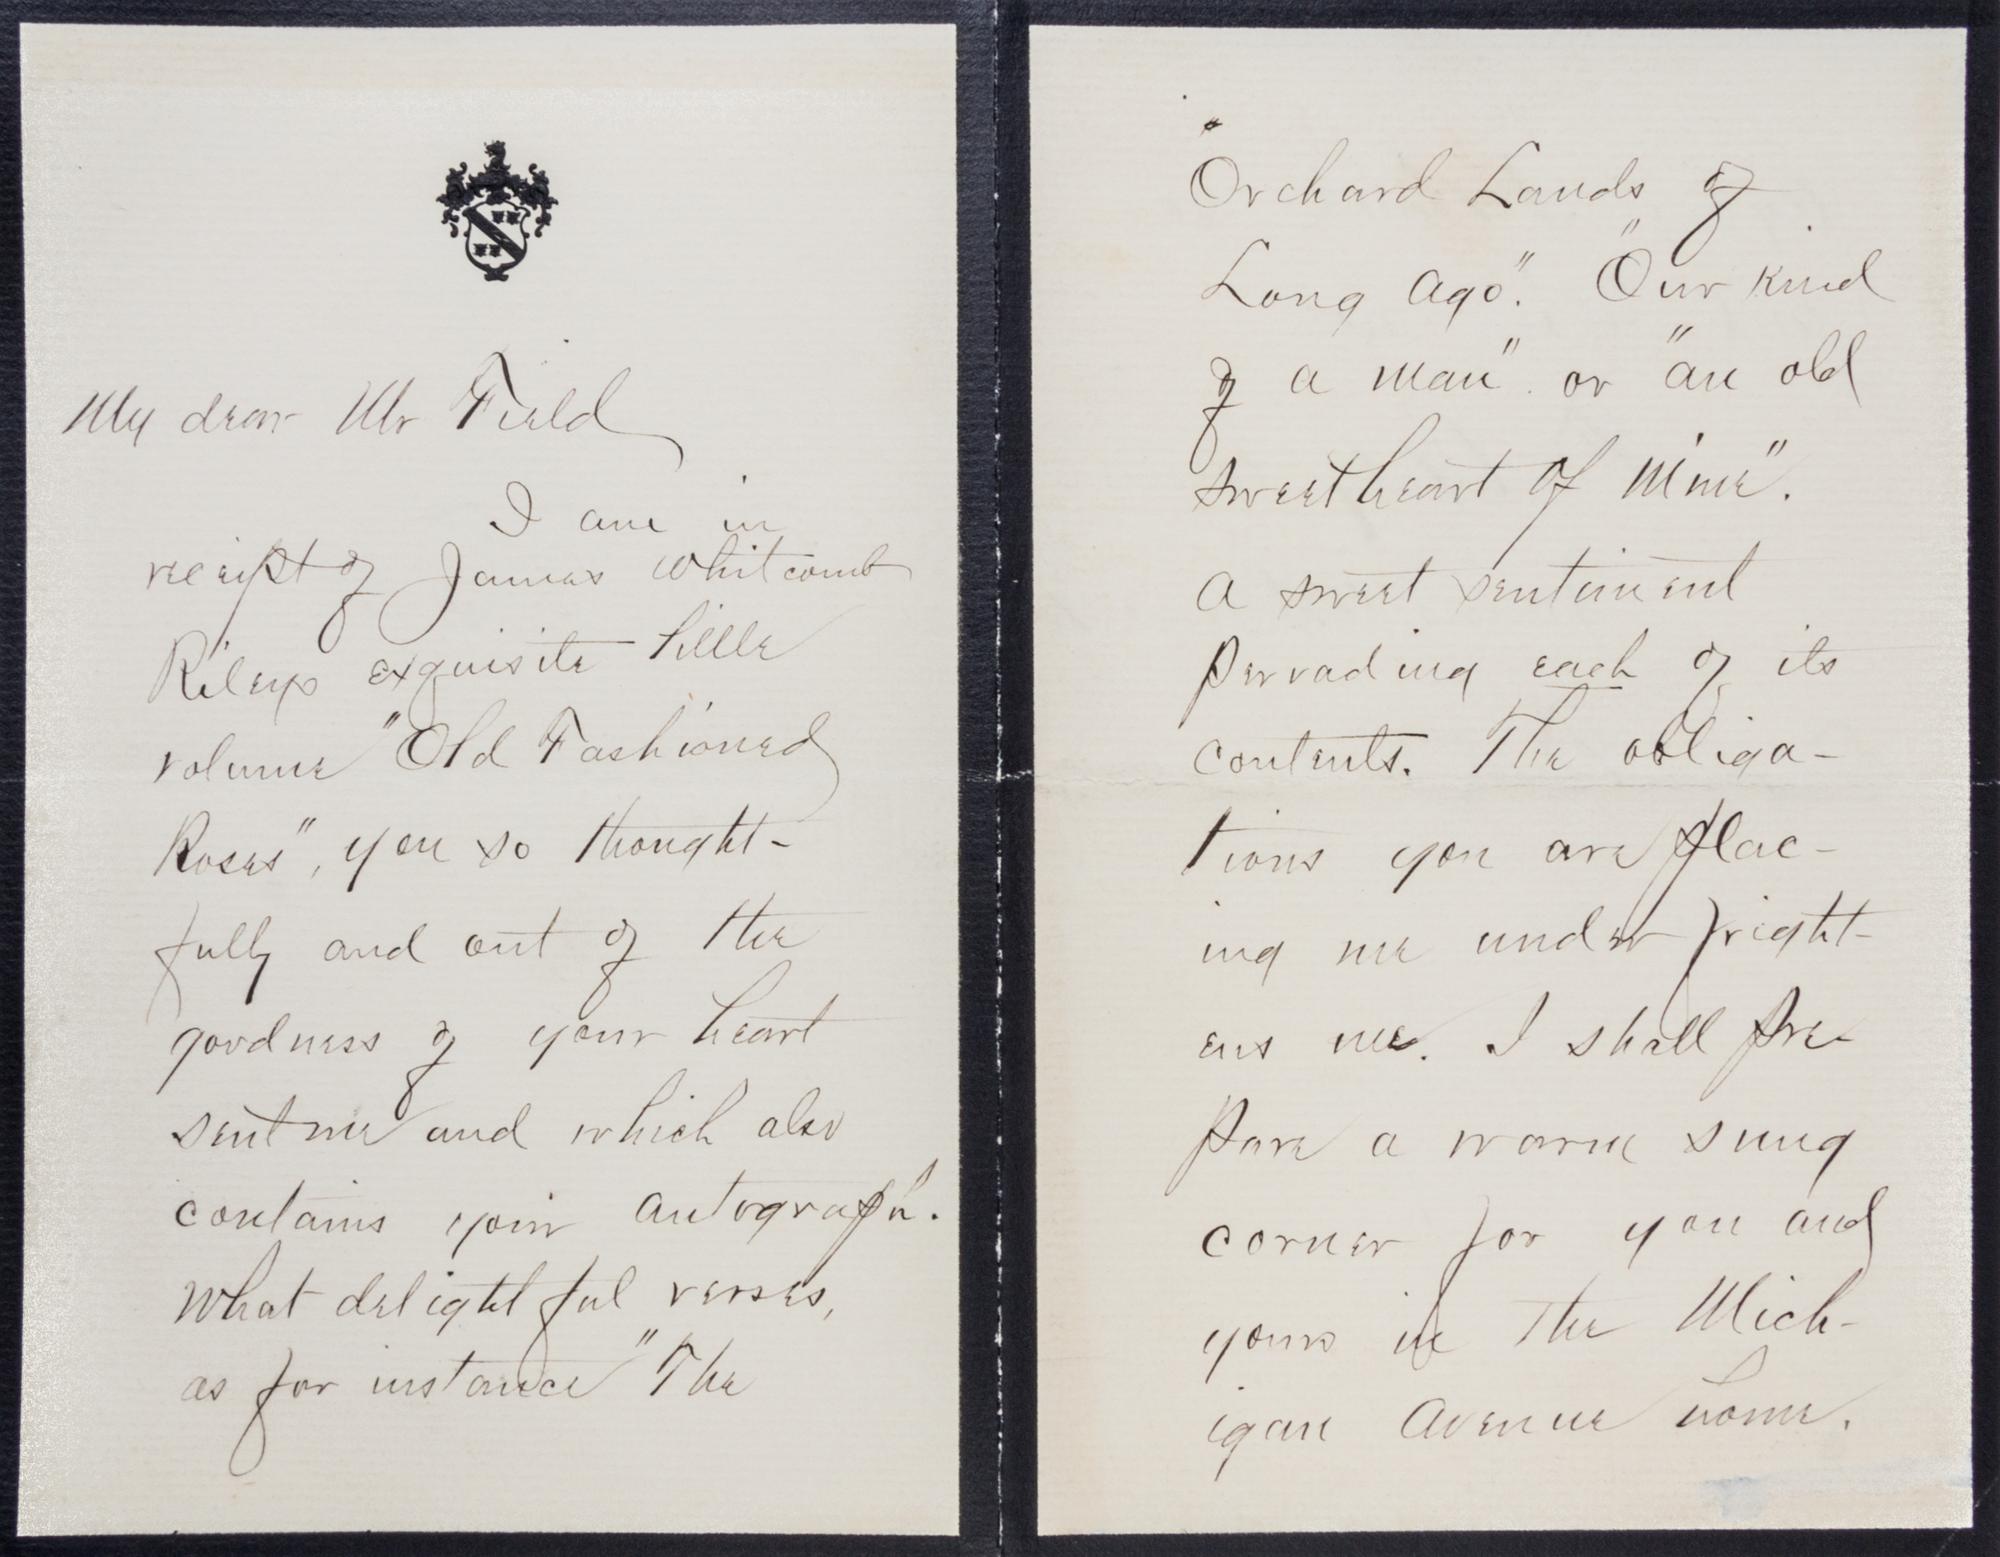 My dear Mr Field
I am in
receipt of James Whitcomb
Rileys exquisite little
volume "Old Fashioned
Roses", you so thought-
fully and out of the
goodness of your heart
sent me and which also
contains your autograph.
What delightful verses,
as for instance "The
"Orchard Lands of
Long Ago". "Our kind
of a man". or "an old
sweetheart of mine".
A sweet sentiment
pervading each of its
contents. The obliga-
tions you are plac-
ing me under fright-
ens me. I shall pre-
pare a warm snug
corner for you and
yours in the Mich-
igan Avenue home.